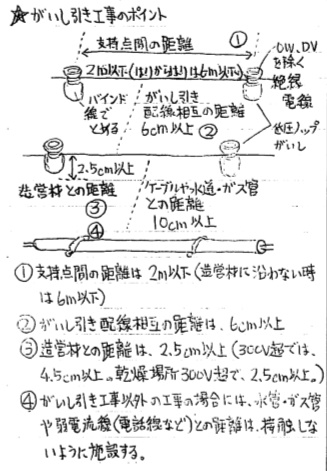 ☆がいし引き工事のポイント
支持点間の距離 ①
2m以下(はりからはりは6m以下)
OW、DV
を除く
絶縁
電線
バインド
線で
とめる
がいし引き
配線相互の距離
6cm以上 ②
低圧ノップ
がいし
2.5cm以上
造営材との距離
③
ケーブルや水道・ガス管
との距離
10cm以上
④
①支持点間の距離は2m以下(造営材に沿わない時
は6m以下)
②がいし引き配線相互の距離は、6cm以上
③造営材との距離は、2.5cm以上(300V超では、
4.5cm以上。乾燥場所300V超で、2.5cm以上。)
④がいし引き工事以外の工事の場合には、水管・ガス管
や弱電流線(電話線など)との距離は、接触しな
いように施設する。